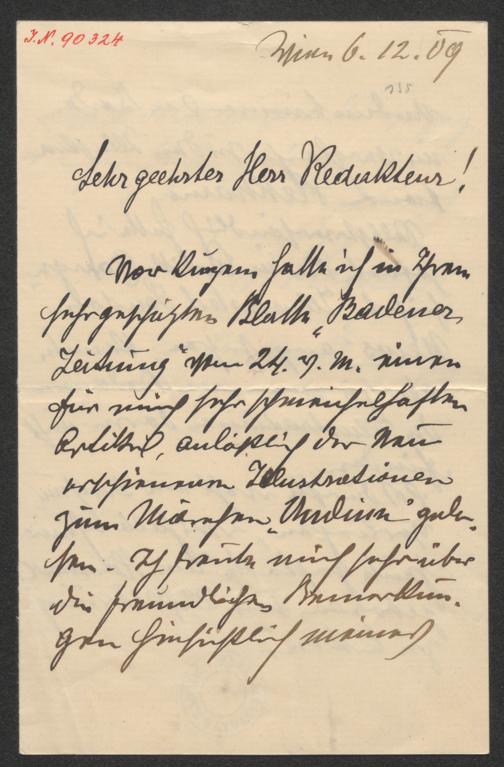 I.N. 90324
Wien 6. 12. 09
135
Sehr geehrter Herr Redakteur!
Vor Kurzem hatte ich in Ihrem
sehr geschätzten Blatte „Badener
Zeitung" vom 24. v. M. einen
für mich sehr schmeichelhaften
Artikel, anläßlich der neu
erschienenen Illustrationen
zum Märchen „Undine" gele-
sen. Ich freute mich sehr über
die freundlichen Bemerkun-
gen hinsichtlich meiner